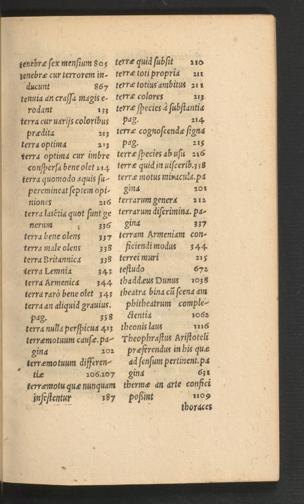 tenebræ sex mensium 805
tenebræ cur terrorem in-
ducunt 867
tenuia an crassa magis e-
rodant 133
terra cur varijs coloribus
prædita 213
terra optima 213
terra optima cur imbre
conspersa bene olet 214
terra quomodo aquis su-
peremineat septem opi-
niones 216
terra lætitia quot sunt ge
nerum 336
terra bene olens 337
terra male olens 338
terra Britannica 338
terra Lemnia 342
terra Armenica 344
terra rarò bene olet 343
terra an aliquid grauius.
pag. 358
terra nulla perspicua 413
terræmotuum causæ. pa-
gina 202
terræmotuum differen-
tiæ 206.207
terræmotu quæ nunquam
infestentur 387
terræ quid subsit 210
terræ toti propria 211
terræ totius ambitus 211
terræ colores 213
terræ species à substantia
pag. 214
terræ cognoscendæ signa
pag. 215
terræ species ab usu 216
terræ quid in visceribus 338
terræ motus miracula. pa
gina 201
terrarum genera 212
terrarum discrimina. pa-
gina 337
terram Armeniam con-
ficiendi modus 344
terrei muri 215
testudo 672
thaddæus Dunus 1038
theatra bina cũ scena am
phitheatrum comple-
ctentia 1062
theonis laus 1116
Theophrastus Aristoteli
præferendus in his quæ
ad sensum pertinent. pa
gina 631
thermæ an arte confici
possint 1109
thoraces